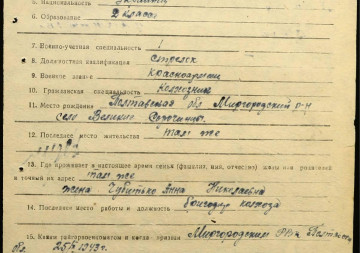 5. Национальность Украинец
6. Образование 2 класса
7. Военно-учетная специальность 1
8. Должностная квалификация стрелок
9. Военное звание красноармеец
10. Гражданская специальность Колхозник
11. Место рождения Полтавская обл Миргородский р-н
село Великие Сорочинцы
12. Последнее место жительства там же
13. Где проживает в настоящее время семья (фамилия, имя, отчество) жены или родителей
и точный их адрес там же
жена Анна Николаевна
14. Последнее место работы и должность бригадир колхоза
15. Каким райгорвоенкоматом и когда призван Миргородским РВК Полтавской
обл. 1943 г.